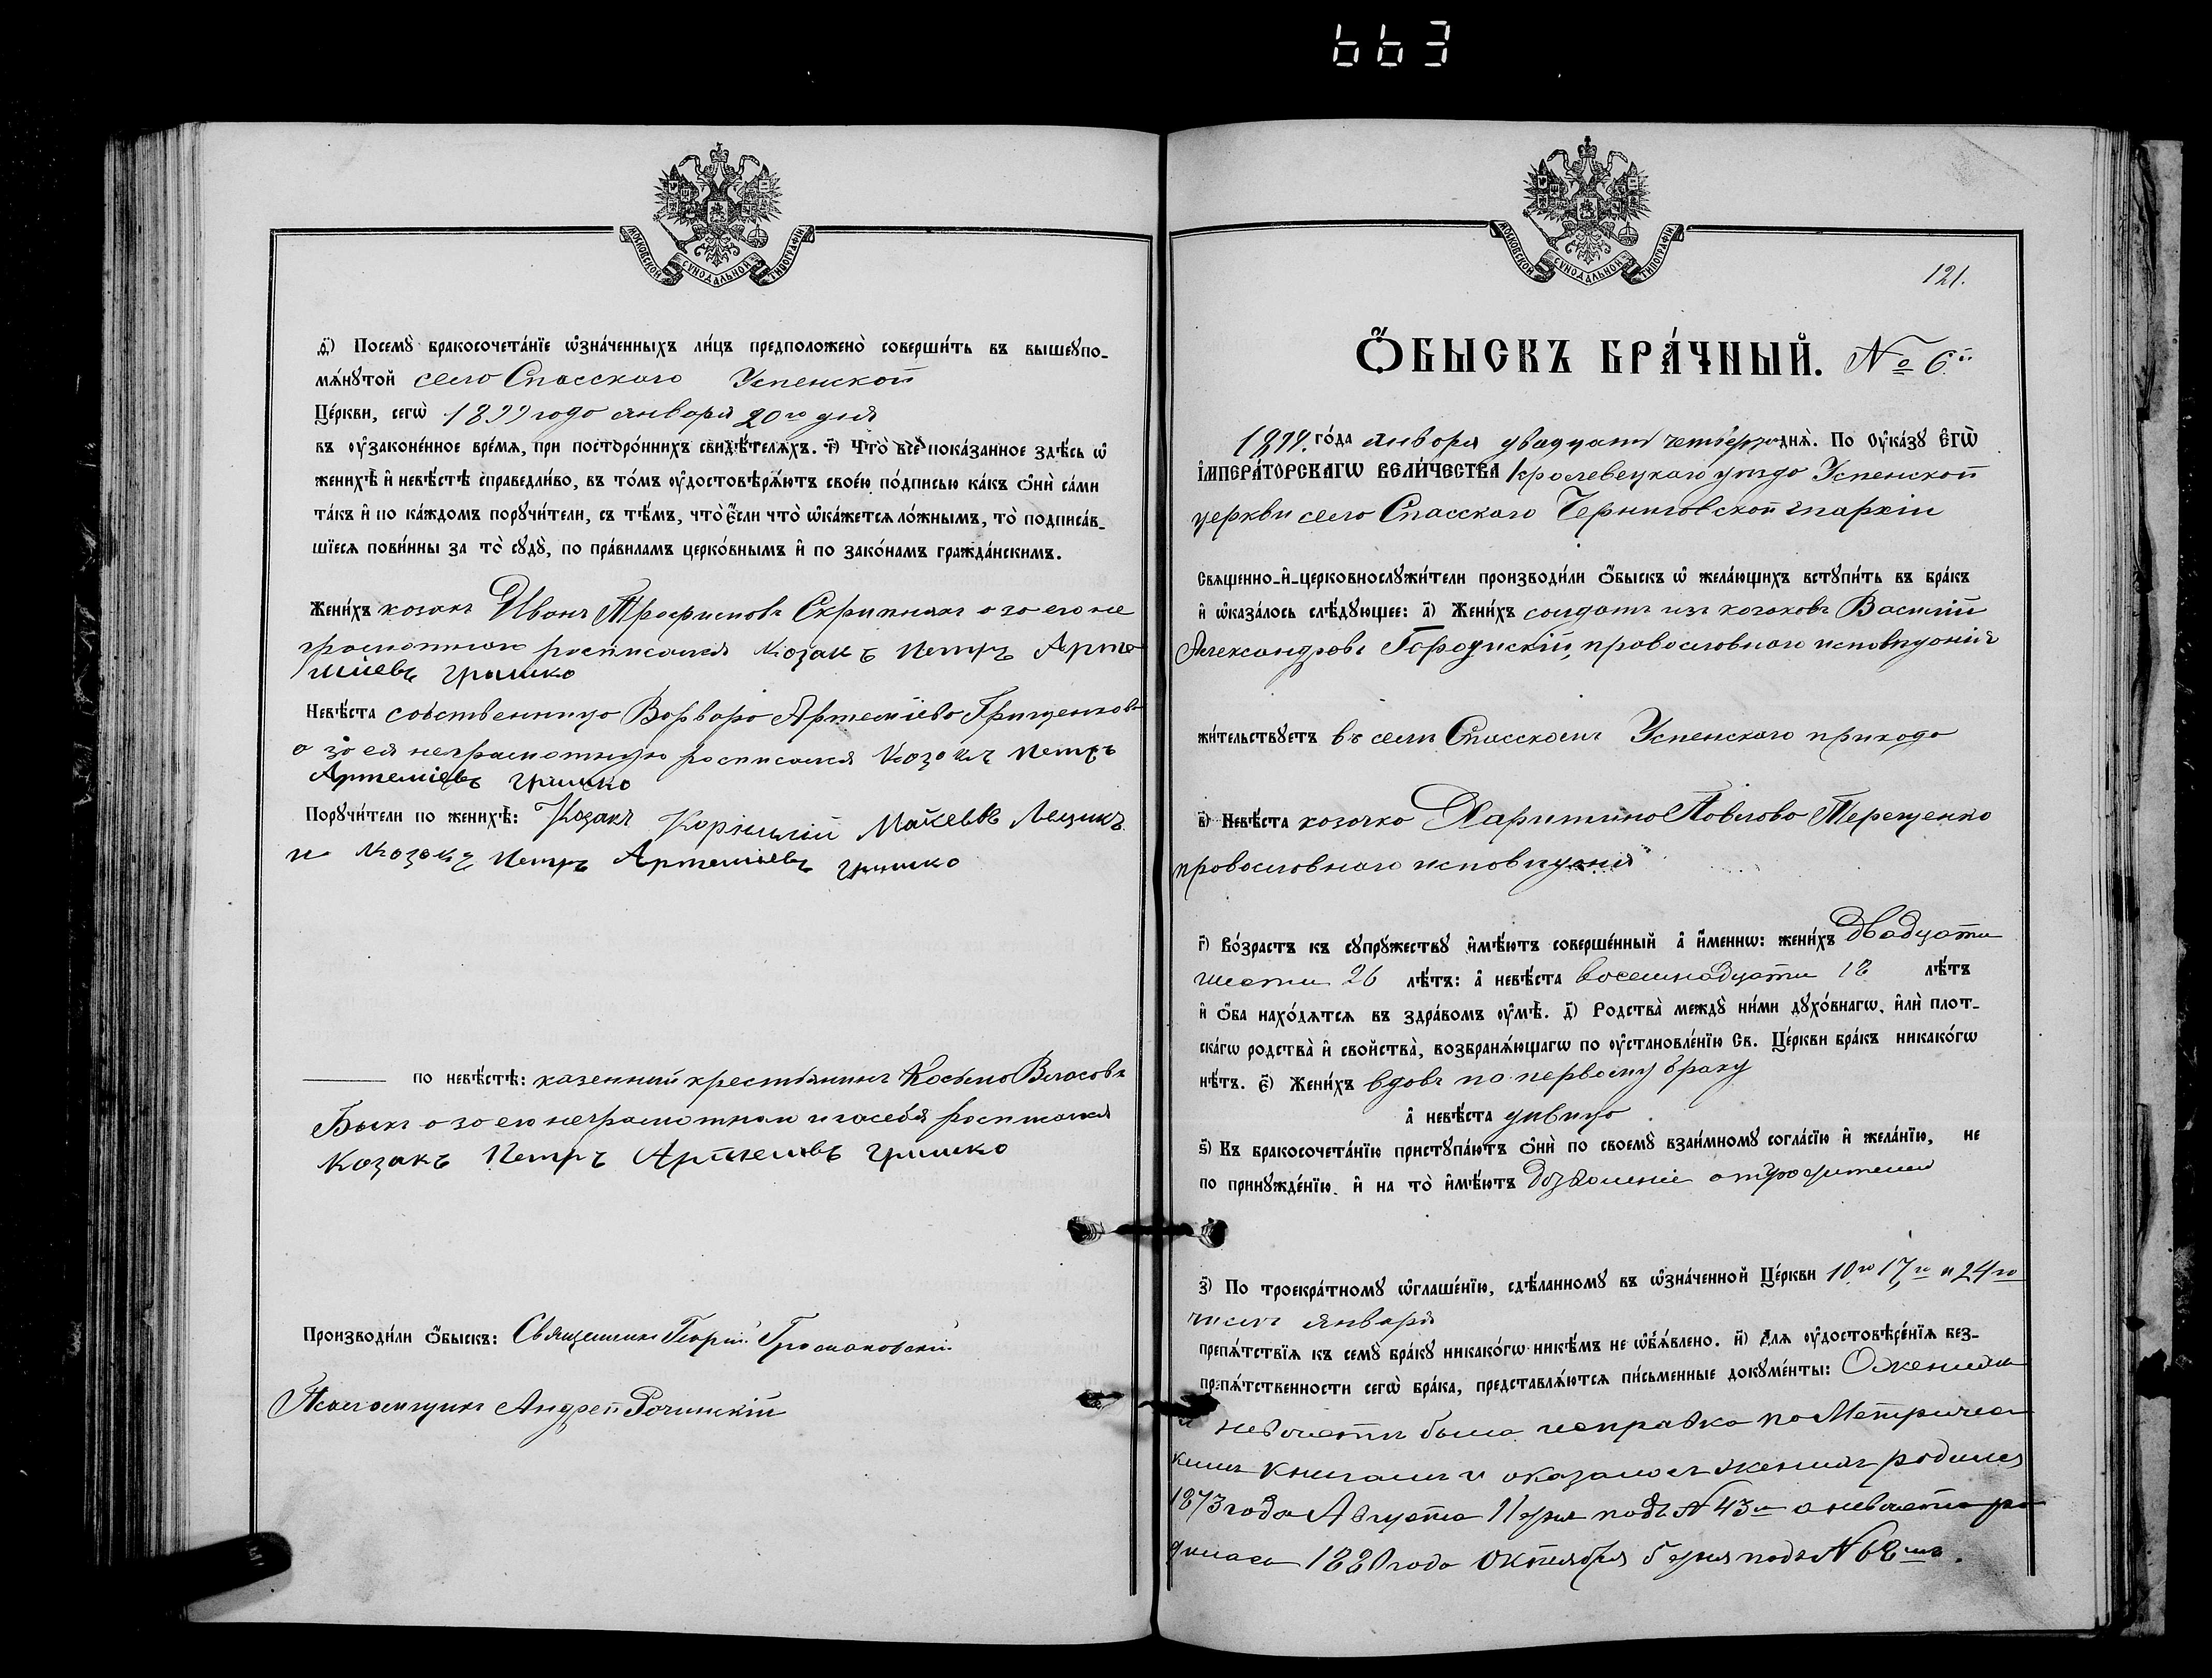 663
МОСКОВСКОЙ СѴНОДАЛЬНОЙ ТИПОГРАФІИ
д҃) Посемꙋ бракосочета́нїе ѡ҆зна́ченныхъ ли́цъ предположено̀ соверши́ть въ вышеꙋпо-
мѧ́нꙋтой село Спасскаго Успенской
Це́ркви, сегѡ̀ 1899 года января 20го дня
въ ѹ҆законе́нное вре́мѧ, при посторо́ннихъ свидѣ́телѧхъ. і҃) Что̀ всѐ пока́занное здѣ́сь ѡ҆
женихѣ̀ и҆ невѣ́стѣ справедли́во, въ то́мъ ѹ҆достовѣрѧ́ютъ свое́ю по́дписью ка́къ ѻ҆нѝ са́ми
та́къ и҆ по ка́ждомъ порꙋчи́тели, съ тѣ́мъ, что̀ є҆́сли что̀ ѡ҆ка́жетсѧ ло́жнымъ, то̀ подписа́в-
шїесѧ пови́нны за то̀ сꙋдꙋ̀, по пра́виламъ церко́внымъ и҆ по зако́намъ гражда́нскимъ.
Жени́хъ козакъ Иванъ Трофимовъ Скрипникъ а за его не
грамотнаго росписался Козакъ Петръ Арте
міевъ Гришко
Невѣ́ста собственница Варвара Артеміева Грищенкова
а за ея неграмотную росписался Козакъ Петръ
Артеміевъ Гришко
Порꙋчи́тели по женихѣ̀: Козакъ Корнилій Лещикъ
и Козакъ Петръ Артеміевъ Гришко
по невѣ́стѣ: казенный крестьянинъ Косьма Власовъ
Быкъ а за его неграмотнаго и за себя росписался
Козакъ Петръ Артеміевъ Гришко
Производи́ли ѻ҆́быскъ: Священникъ Георгій Громаковскій
Псаломщикъ Андрей Рачинскій
МОСКОВСКОЙ СѴНОДАЛЬНОЙ ТИПОГРАФІИ
121.
Ѻ҆́БЫСКЪ БРА́ЧНЫЙ. № 6й
1899. го́да января двадцать четвертаго днѧ̀. По ѹ҆ка́зꙋ Є҆ГѠ̀
І҆МПЕРА́ТОРСКАГѠ ВЕЛИ́ЧЕСТВА Кролевецкаго уѣзда Успенской
церкви села Спасскаго Черниговской епархіи
Свѧщенно-и҆-церковнослꙋжи́тели производи́ли ѻ҆́быскъ ѡ҆ жела́ющихъ встꙋпи́ть въ бра́къ
и҆ ѡ҆каза́лось слѣ́дꙋющее: а҃) Жени́хъ солдатъ изъ козаковъ Василій
Александровъ Городискій, православнаго исповѣданія
жи́тельствꙋетъ въ селѣ Спасскомъ Успенскаго прихода
в҃) Невѣ́ста козачка Харитина Павлова Терещенко
православнаго исповѣданія
г҃) Во́зрастъ къ сꙋпрꙋ́жествꙋ и҆мѣ́ютъ соверше́нный а҆ и҆́меннѡ: жени́хъ двадцати
шести 26 лѣ́тъ: а҆ невѣ́ста восемнадцати 18 лѣ́тъ
и҆ ѻ҆́ба нахо́дѧтсѧ въ здра́вомъ ѹ҆мѣ̀. д҃) Родства̀ междꙋ̀ ни́ми дꙋхо́внагѡ, и҆лѝ плот-
ска́гѡ родства̀ и҆ свойства̀, возбранѧ́ющагѡ по ѹ҆становле́нїю Св. Це́ркви бра́къ никако́гѡ
нѣ́тъ. є҃) Жени́хъ вдовъ по первому браку
а҆ невѣ́ста дѣвица
ѕ҃) Къ бракосочета́нїю пристꙋпа́ютъ ѻ҆нѝ по своемꙋ̀ взаи́мномꙋ согла́сїю и҆ жела́нїю, не
по принꙋжде́нїю. и҆ на то̀ и҆мѣ́ютъ дозволеніе отъ родителей
з҃) По троекра́тномꙋ ѡ҆глаше́нїю, сдѣ́ланномꙋ въ ѡ҆зна́ченной Це́ркви 10го 17го и 24го
числъ января
препѧ́тствїѧ къ семꙋ̀ бра́кꙋ никако́гѡ никѣ́мъ не ѡ҆б̾ѧ́влено. и҃) Длѧ ѹ҆достовѣре́нїѧ без-
препѧ́тственности сегѡ̀ бра́ка, представлѧ́ютсѧ пи́сьменные докꙋме́нты: О женихѣ
и невѣстѣ была исправка по Метричес
кимъ книгамъ и оказалось женихъ родился
1873 года Августа 11 дня подъ № 43м а невѣста ро
дилась 1880 года Октября 5 дня подъ № 68мъ.